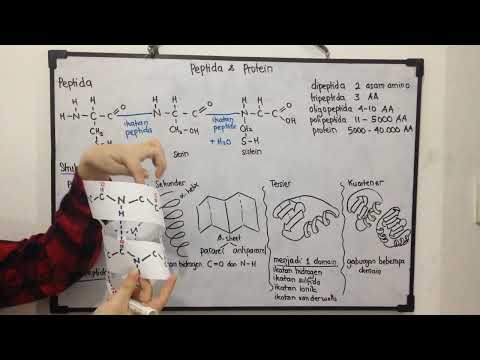 Peptida & Protein
Peptida
dipeptida 2 asam amino
tripeptida 3 AA
oligopeptida 4-10 AA
polipeptida 11 - 5000 AA
protein 5000 - 40.000 AA
H-N-C-C N-C-C N-C-C
H H O H H O H H O OH
ikatan peptida
ikatan peptida
+ H₂O
CH₂-OH
CH₂
S-H
serin
sistein
Sekunder
Tersier
Kuartener
α helix
β sheet
paralel antiparalel
hidrogen C=O dan N-H
menjadi 1 domain
ikatan hidrogen
ikatan sulfida
ikatan ionik
ikatan van der walls
gabungan beberapa
domain